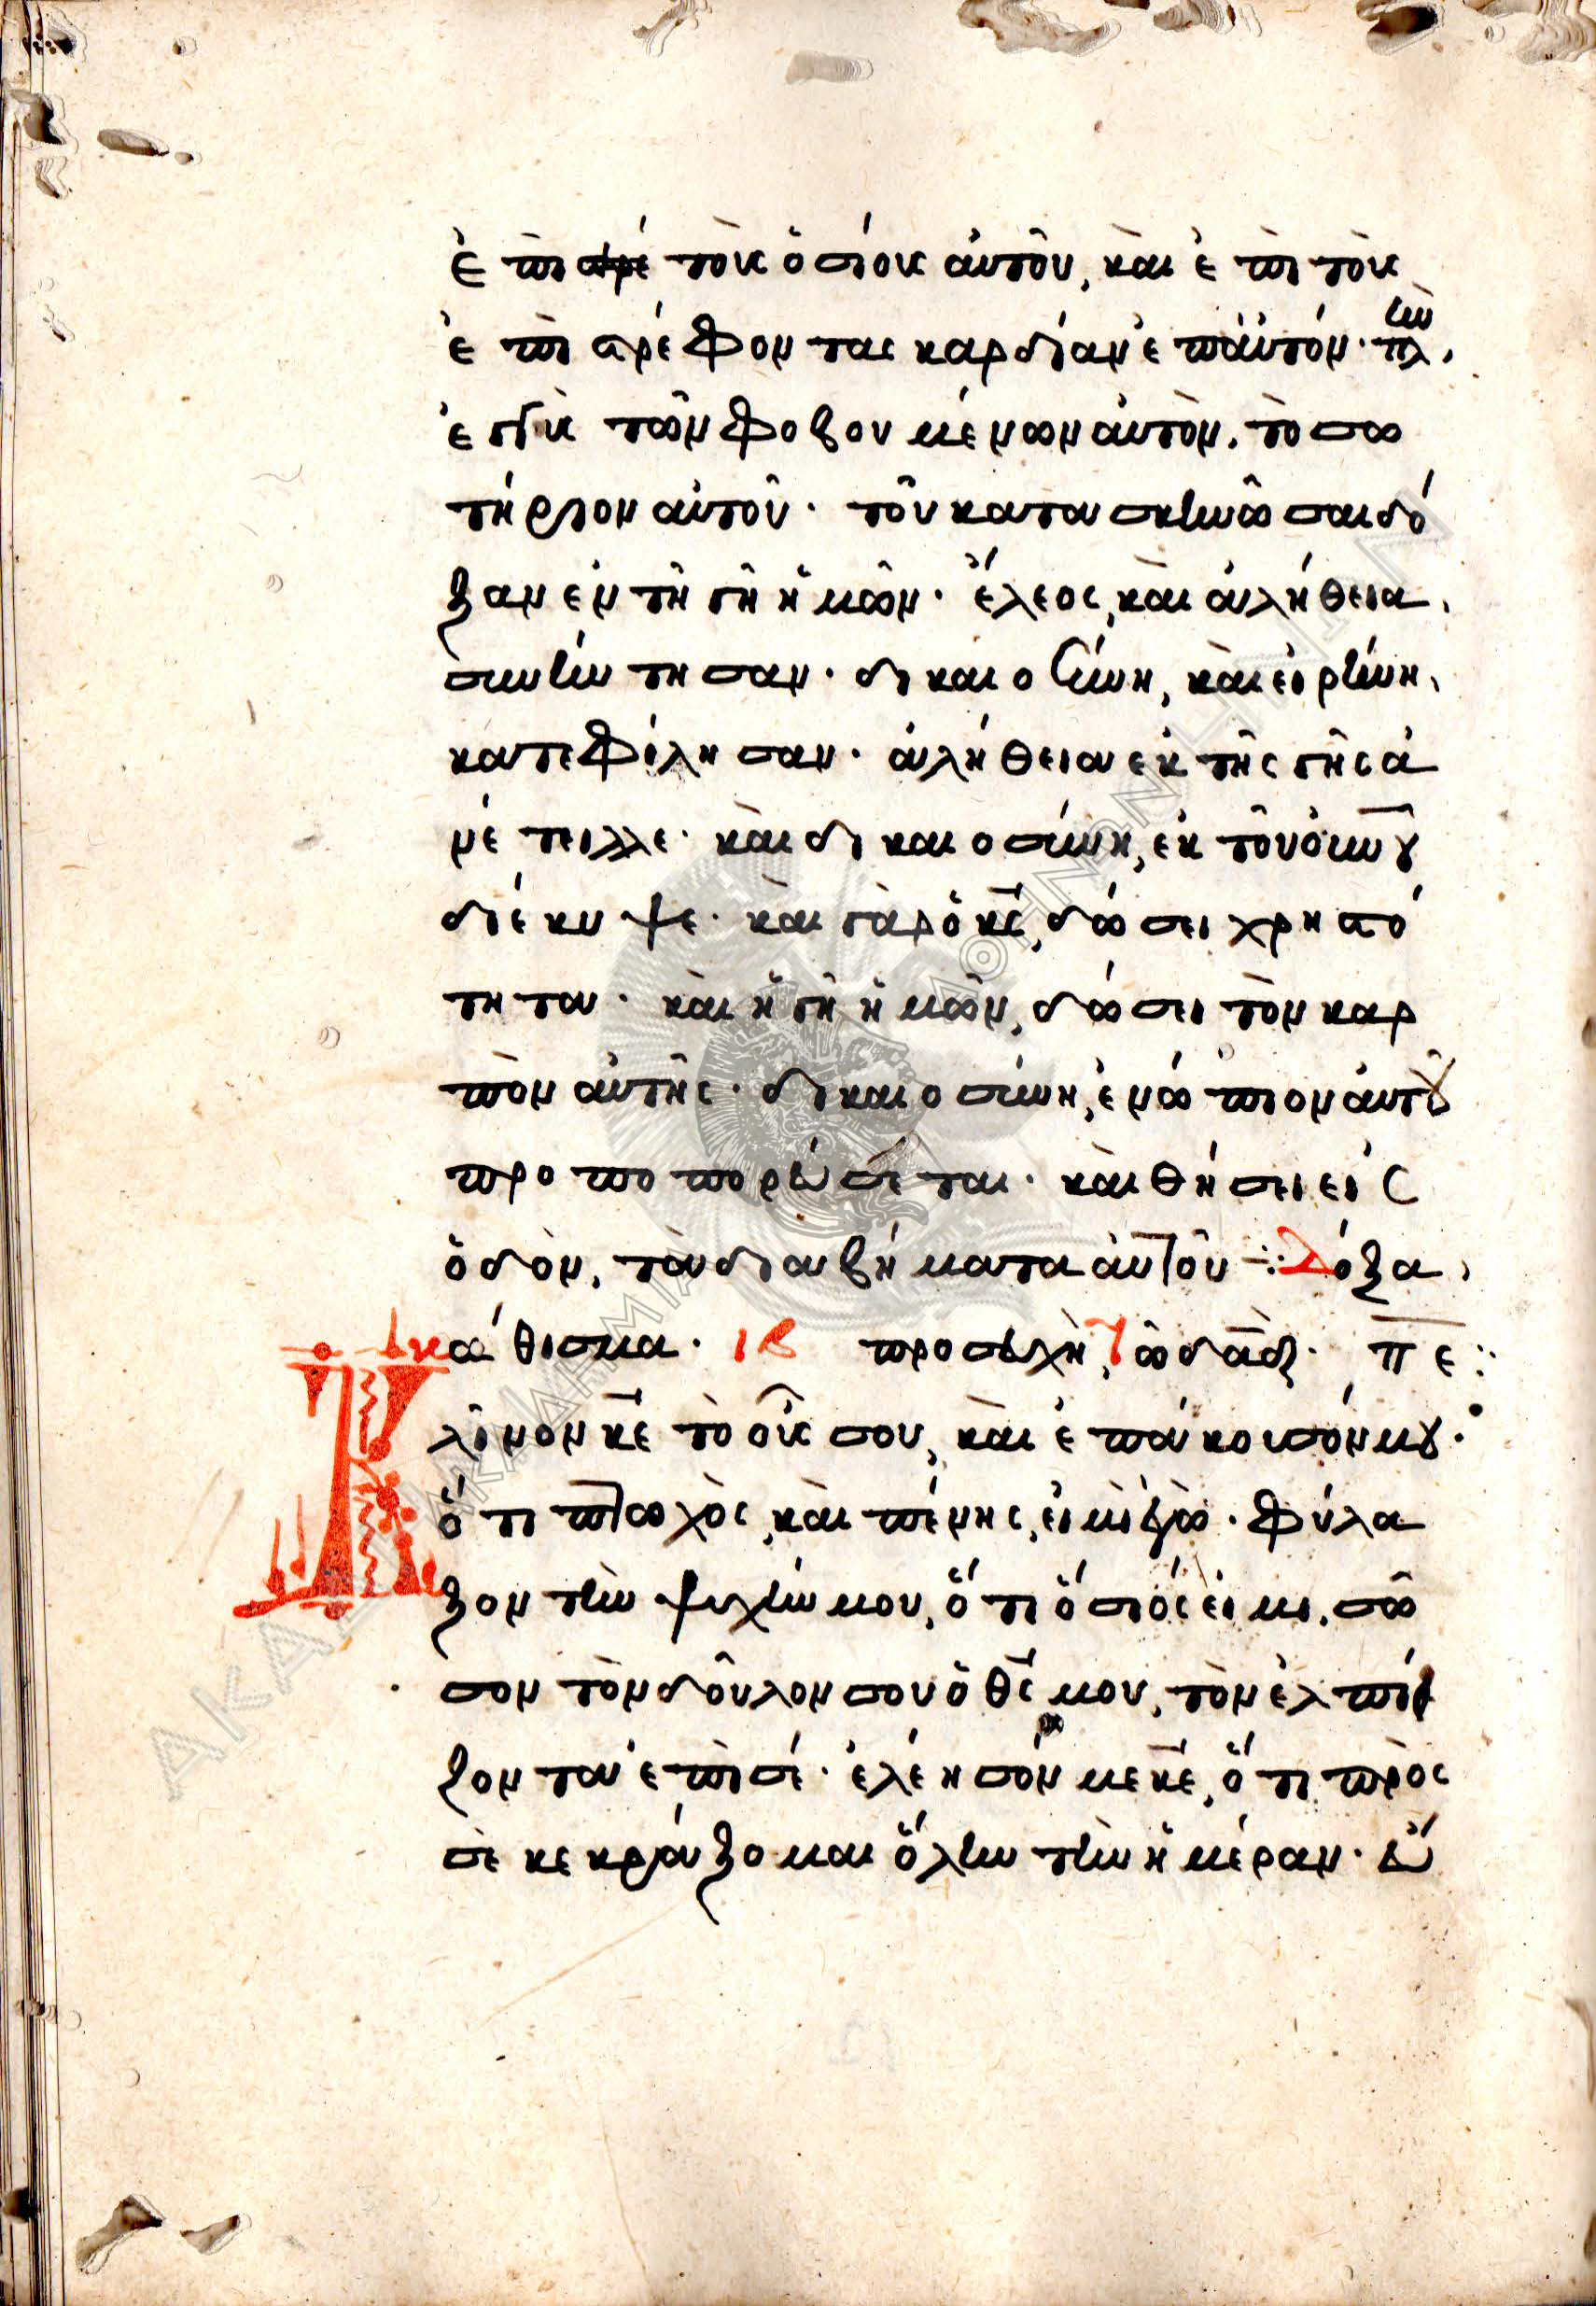 ἐπι στρέ τοὺς ὁσίους αὐτοῦ, καὶ ἐπι τοὺς
ἐπιστρέφοντας καρδίαν ἐπ' αὐτόν. πλὴν
ἐγγὺς τῶν φοβουμένων αὐτὸν, τὸ σω
τήριον αὐτοῦ. τοῦ κατασκηνῶσαι δό
ξαν ἐν τῆ γῆ ἡμῶν. ἔλεος, καὶ ἀλήθεια,
συνήντησαν. δικαιοσύνη, καὶ εἰρήνη,
κατεφίλησαν. ἀλήθεια ἐκ τῆς γῆς ἀ
νέτειλλε. καὶ δικαιοσύνη, ἐκ τοῦ οὐνοῦ
διέκυψε. καὶ γὰρ ὁ κς, δώσει χρηστό
τητα. καὶ ἡ γῆ ἡμῶν, δώσει τὸν καρ
πὸν αὐτῆς. δικαιοσύνη, ἐνώπιον αὐτοῦ
προπορεύσεται. καὶ θήσει εἰς
ὁδὸν, τὰ διαβήματα αὐτοῦ ⁘ Δόξα,
κάθισμα. ιβ προσευχὴ τῶ δαδ. πε:
Κλῖνον κε τὸ οὖς σου, καὶ ἐπάκουσόν μου.
ὅτι πτωχὸς, καὶ πένης, εἰμὶ ἐγὼ. φύλα
ξον τὴν ψυχήν μου, ὅτι ὅσιός εἰμι. σῶ
σον τὸν δοῦλον σου ὁ θς μου, τὸν ἐλπί
ζοντα ἐπὶ σέ. ἐλέησόν με κε, ὅτι πρὸς
σὲ κεκράξομαι ὅλην τὴν ἡμέραν. εὔ
ΑΚΑΔΗΜΙΑ ΑΘΗΝΩΝ